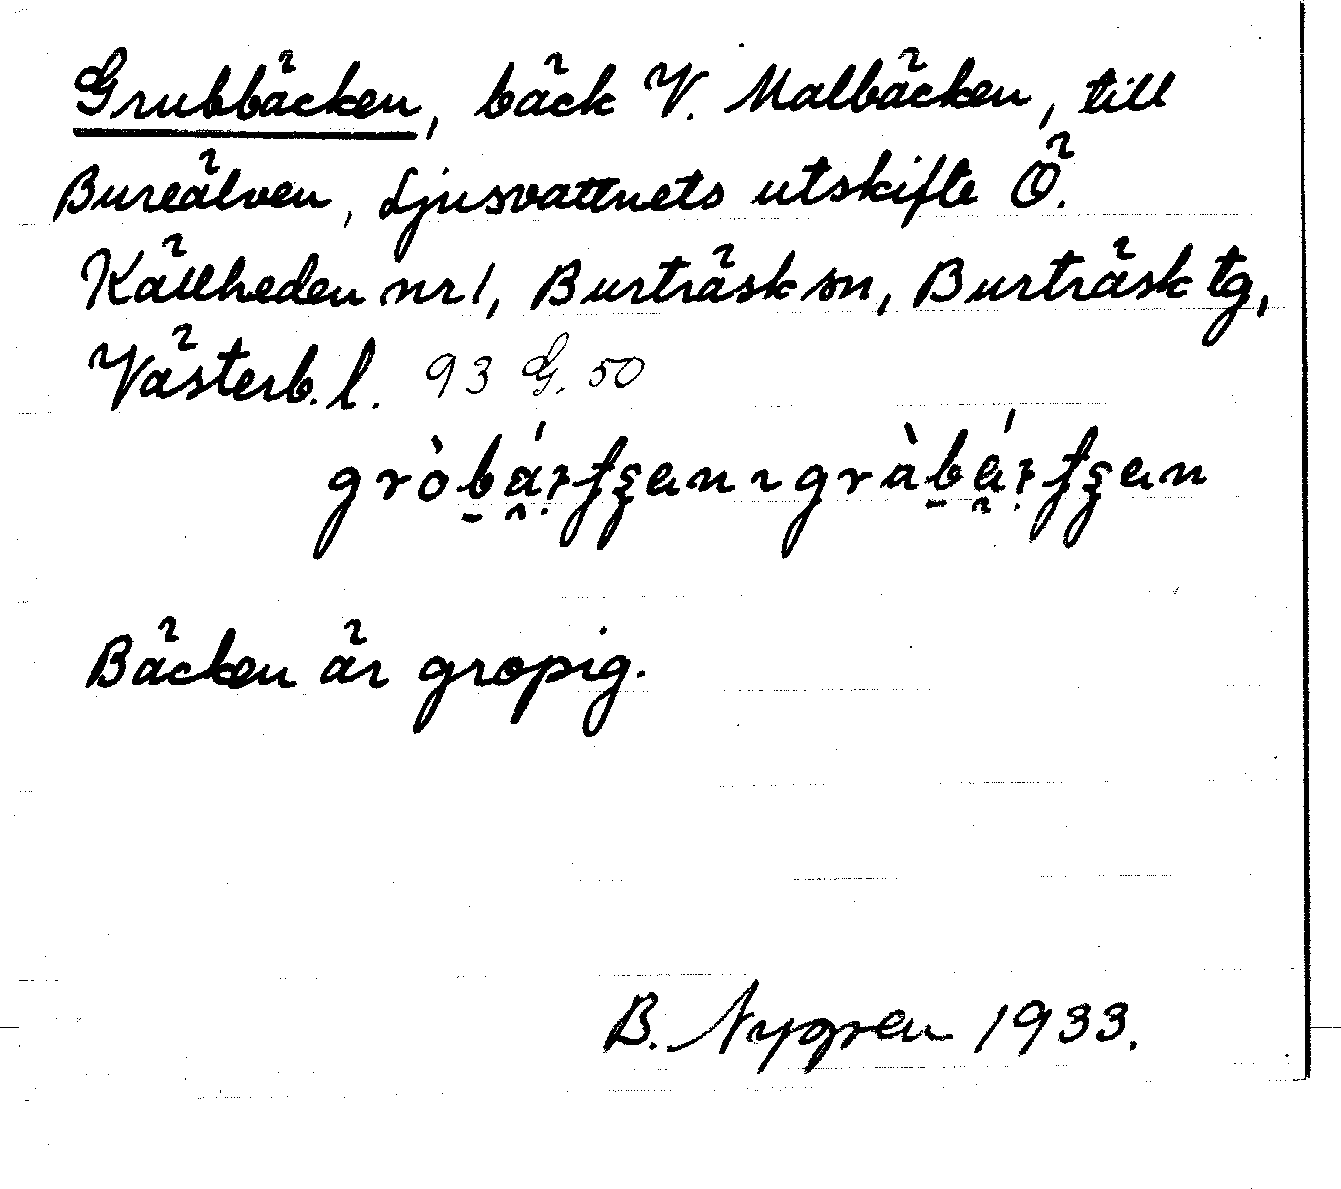 Grubbäcken, bäck V. Malbäcken, till
Bureälven, Ljusvattnets utskifte Ö.
Källheden nr 1, Burträsk sn, Burträsk tg,
Västerb. l. 93 G. 50
Bäcken är gropig.
B. Nygren 1933.